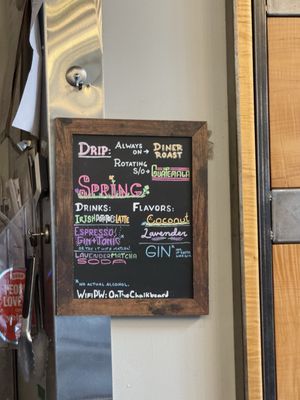 Drip: Always on → Diner Roast
Rotating S/O → Guatemala
Spring
Drinks: Flavors:
Irish Latte Coconut
Espresso Lavender
Gin+Tonic GIN*
Lavender Matcha
Soda
*No actual alcohol.
WiFi PW: OnTheChalkboard
NEON
LOVE